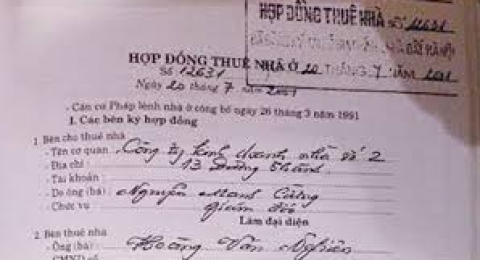 HỢP ĐỒNG THUÊ NHÀ Số 12631
20 THÁNG 7 NĂM 2001
HỢP ĐỒNG THUÊ NHÀ Ở
Số 12631
Ngày 20 tháng 7 năm 2001
- Căn cứ Pháp lệnh nhà ở công bố ngày 26 tháng 3 năm 1991
I. Các bên ký hợp đồng
1. Bên cho thuê nhà
- Tên cơ quan : Công ty kinh doanh nhà số 2
- Địa chỉ : 13 Đường Thành
- Tài khoản :
- Do ông (bà) : Nguyễn Mạnh Cường
- Chức vụ : Giám đốc
Làm đại diện
2. Bên thuê nhà
- Ông (bà) : Hoàng Văn Nghiên
- CMND số